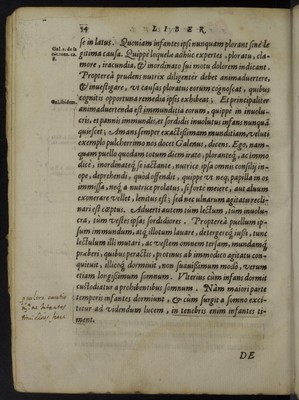 34 LIBER
se in latus. Quoniam infantes ipsi nunquam plorant sine legitima causa. Quippe loquelæ adhuc expertes, ploratu, clamore, iracundia, & inordinato sui motu dolorem indicant.
Propterea prudens nutrix diligenter debet animaduertere,
& inuestigare, vt causas ploratus eorum cognoscat, quibus
cognitis opportuna remedia ipsis exhibeat. Et principaliter
animaduertenda est immunditia eorum, quippe in inuolucris, et pannis immundis, et sordidis inuolutus infans nunquã
quiescet; Amans semper exactissimam munditiam, veluti
exemplo pulcherrimo nos docet Galenus, dicens. Ego, namquam puello quodam totum diem orato, plorantq́;, ac immodicè, inordinateq́; se iactante, nutrice ipsa omnis consilij inope, deprehendi, quòd offendit, quippe vt neq; papilla in os
immissa, neq́; à nutrice prolatus, si fortè meiere, aut aluum
exonerare vellet, lenitus est; sed nec vlnarum agitatu reclinari est cœptus. Aduerti autem tum lectum, tum inuolucra, tum vestes ipsas sordidiores. Propterea puellum ipsum immundum, atq́; illotum lauare, detergereq́; iussi, tunc
lectulum illi mutari, ac vestem omnem tersam, mundamq́;
præberi, quibus peractis, protinus ab immodico agitatu conquieuit, illicoq́; dormiuit, non suauissimum modò, verum
etiam longissimum somnum. Vlterius cum infans dormit
custodiatur a prohibentibus somnum. Nàm maiori parte
temporis infantes dormiunt, & cùm surgit a somno excitetur ad videndum lucem, in tenebris enim infantes timent.
DE